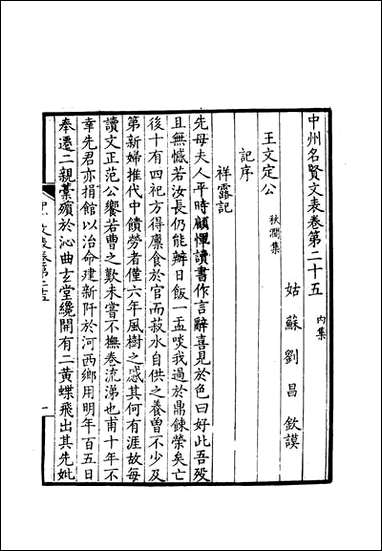 中州名賢文表卷第二十五 內集
姑蘇劉昌欽謨
王文定公 秋澗集
記序
祥露記
先母夫人平時顧惲讀書作言辭喜見於色曰好此吾歿
且無憾若汝長仍能辦日飯一盂啖我過於鼎餗榮矣亡
後十有四祀方得廩食於官而菽水自供之養曽不少及
第新婦推代中饋勞者僅六年風樹之感其何有涯故每
讀文正范公饗若曹之歎未嘗不撫卷流涕也甫十年不
幸先君亦捐館以治命建新阡於河西鄉用明年百五日
奉遷二親藁殯於沁曲玄堂纔開有二黃蝶飛出其先妣
中州文表卷第二十五
一